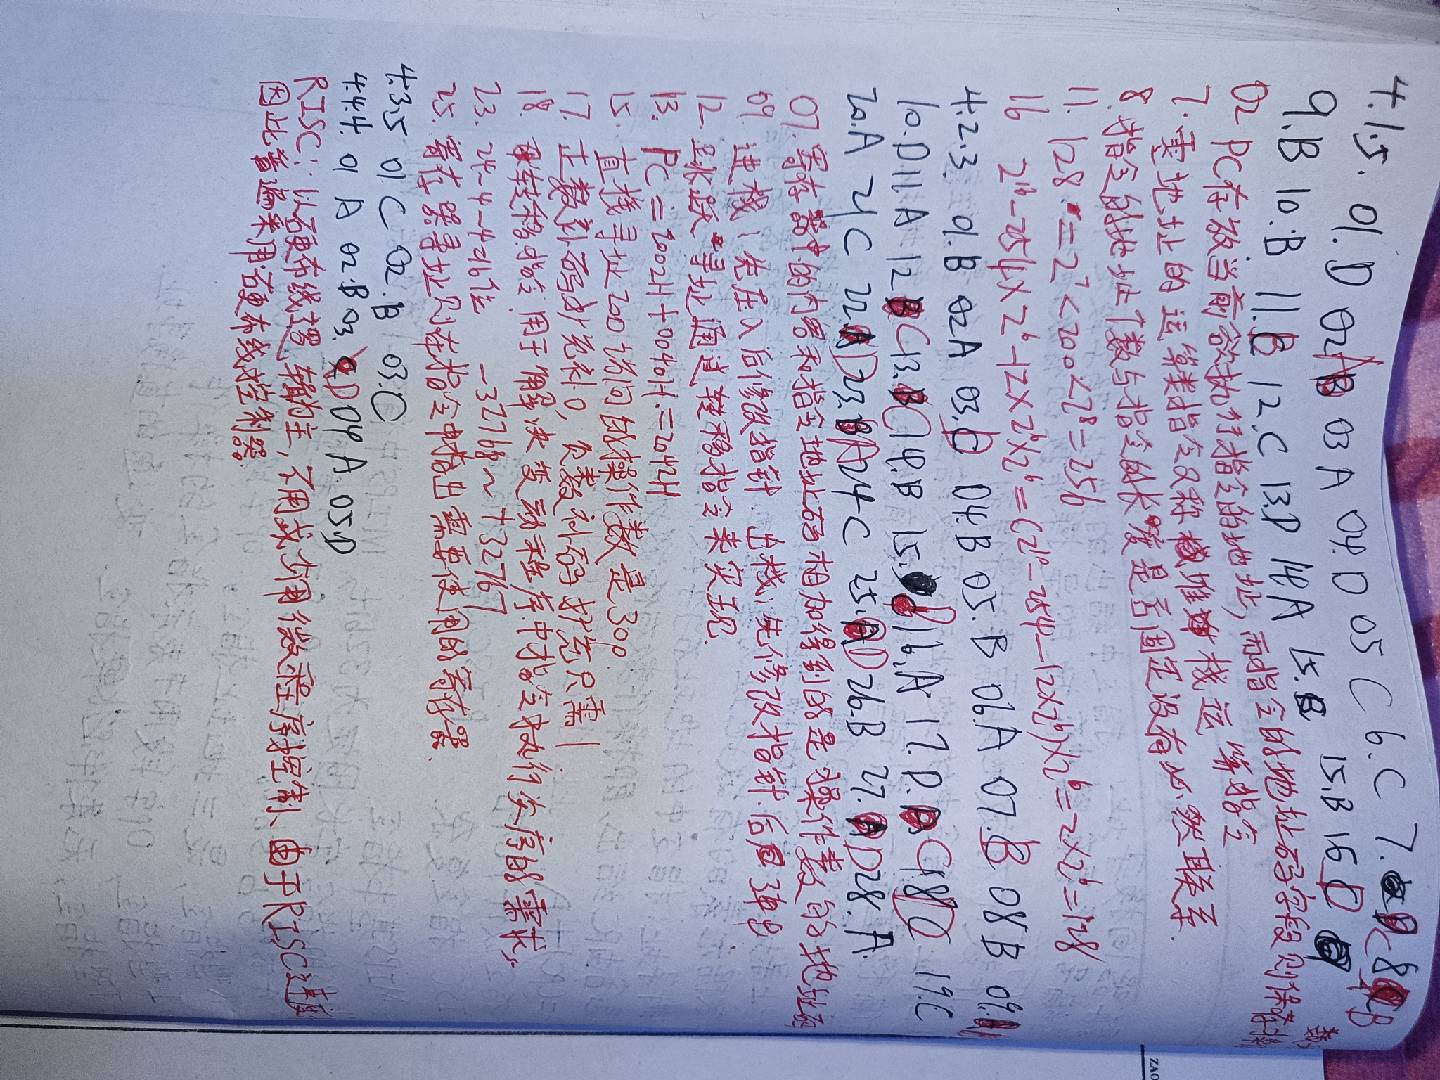 4.1.5. 01.D 02 A 03 A 04.D 05 C 6.C 7. C 8 B
9.B 10.B 11.B 12.C 13.D 14A 15.B 15.B 16 D
02 PC存放当前欲执行指令的地址,而指令的地址码字段则保存操
7. 零地址的运算类指令又称堆栈运算指令
8. 指令的地址个数与指令的长度是否固定没有必然联系.
11. 128=2⁷<200<2⁸=256
16 2¹⁶-254×2⁶-12×2⁶×2⁶=(2¹⁰-254-12×2⁶)×2⁶=2×2⁶=128
4.2.3. 01.B 02A 03.D 04.B 05.B 06.A 07.B 08B 09.
10.D 11.A 12 C 13. C 14.B 15. D 16.A 17. D. C 18 C 19.C
20.A 21C 22. D 23. A 24C 25. D 26.B 27. D 28.A.
07. 寄存器中的内容和指令地址码相加得到的是操作数的地址码
09. 进栈:先压入后修改指针. 出栈:先修改指针.后弹出.
12. 跳跃寻址通过转移指令来实现.
13. PC=2002H+0040H=2042H
15. 直接寻址200访问的操作数是300.
17. 正数补码扩充补0,负数补码扩充只需1.
18. 转移指令用于解决变动程序中指令执行次序的需求,
23. 24-4-4=16位 -32768~+32767
25. 寄存器寻址则在指令中指出需要使用的寄存器.
4.3.5 01 C 02.B 03.C
4.4.4. 01 A 02.B 03. D 04 A. 05.D
RISC: 以硬布线逻辑为主,不用或少用微程序控制、由于RISC速度
因此普遍采用硬布线控制器.
ZAO